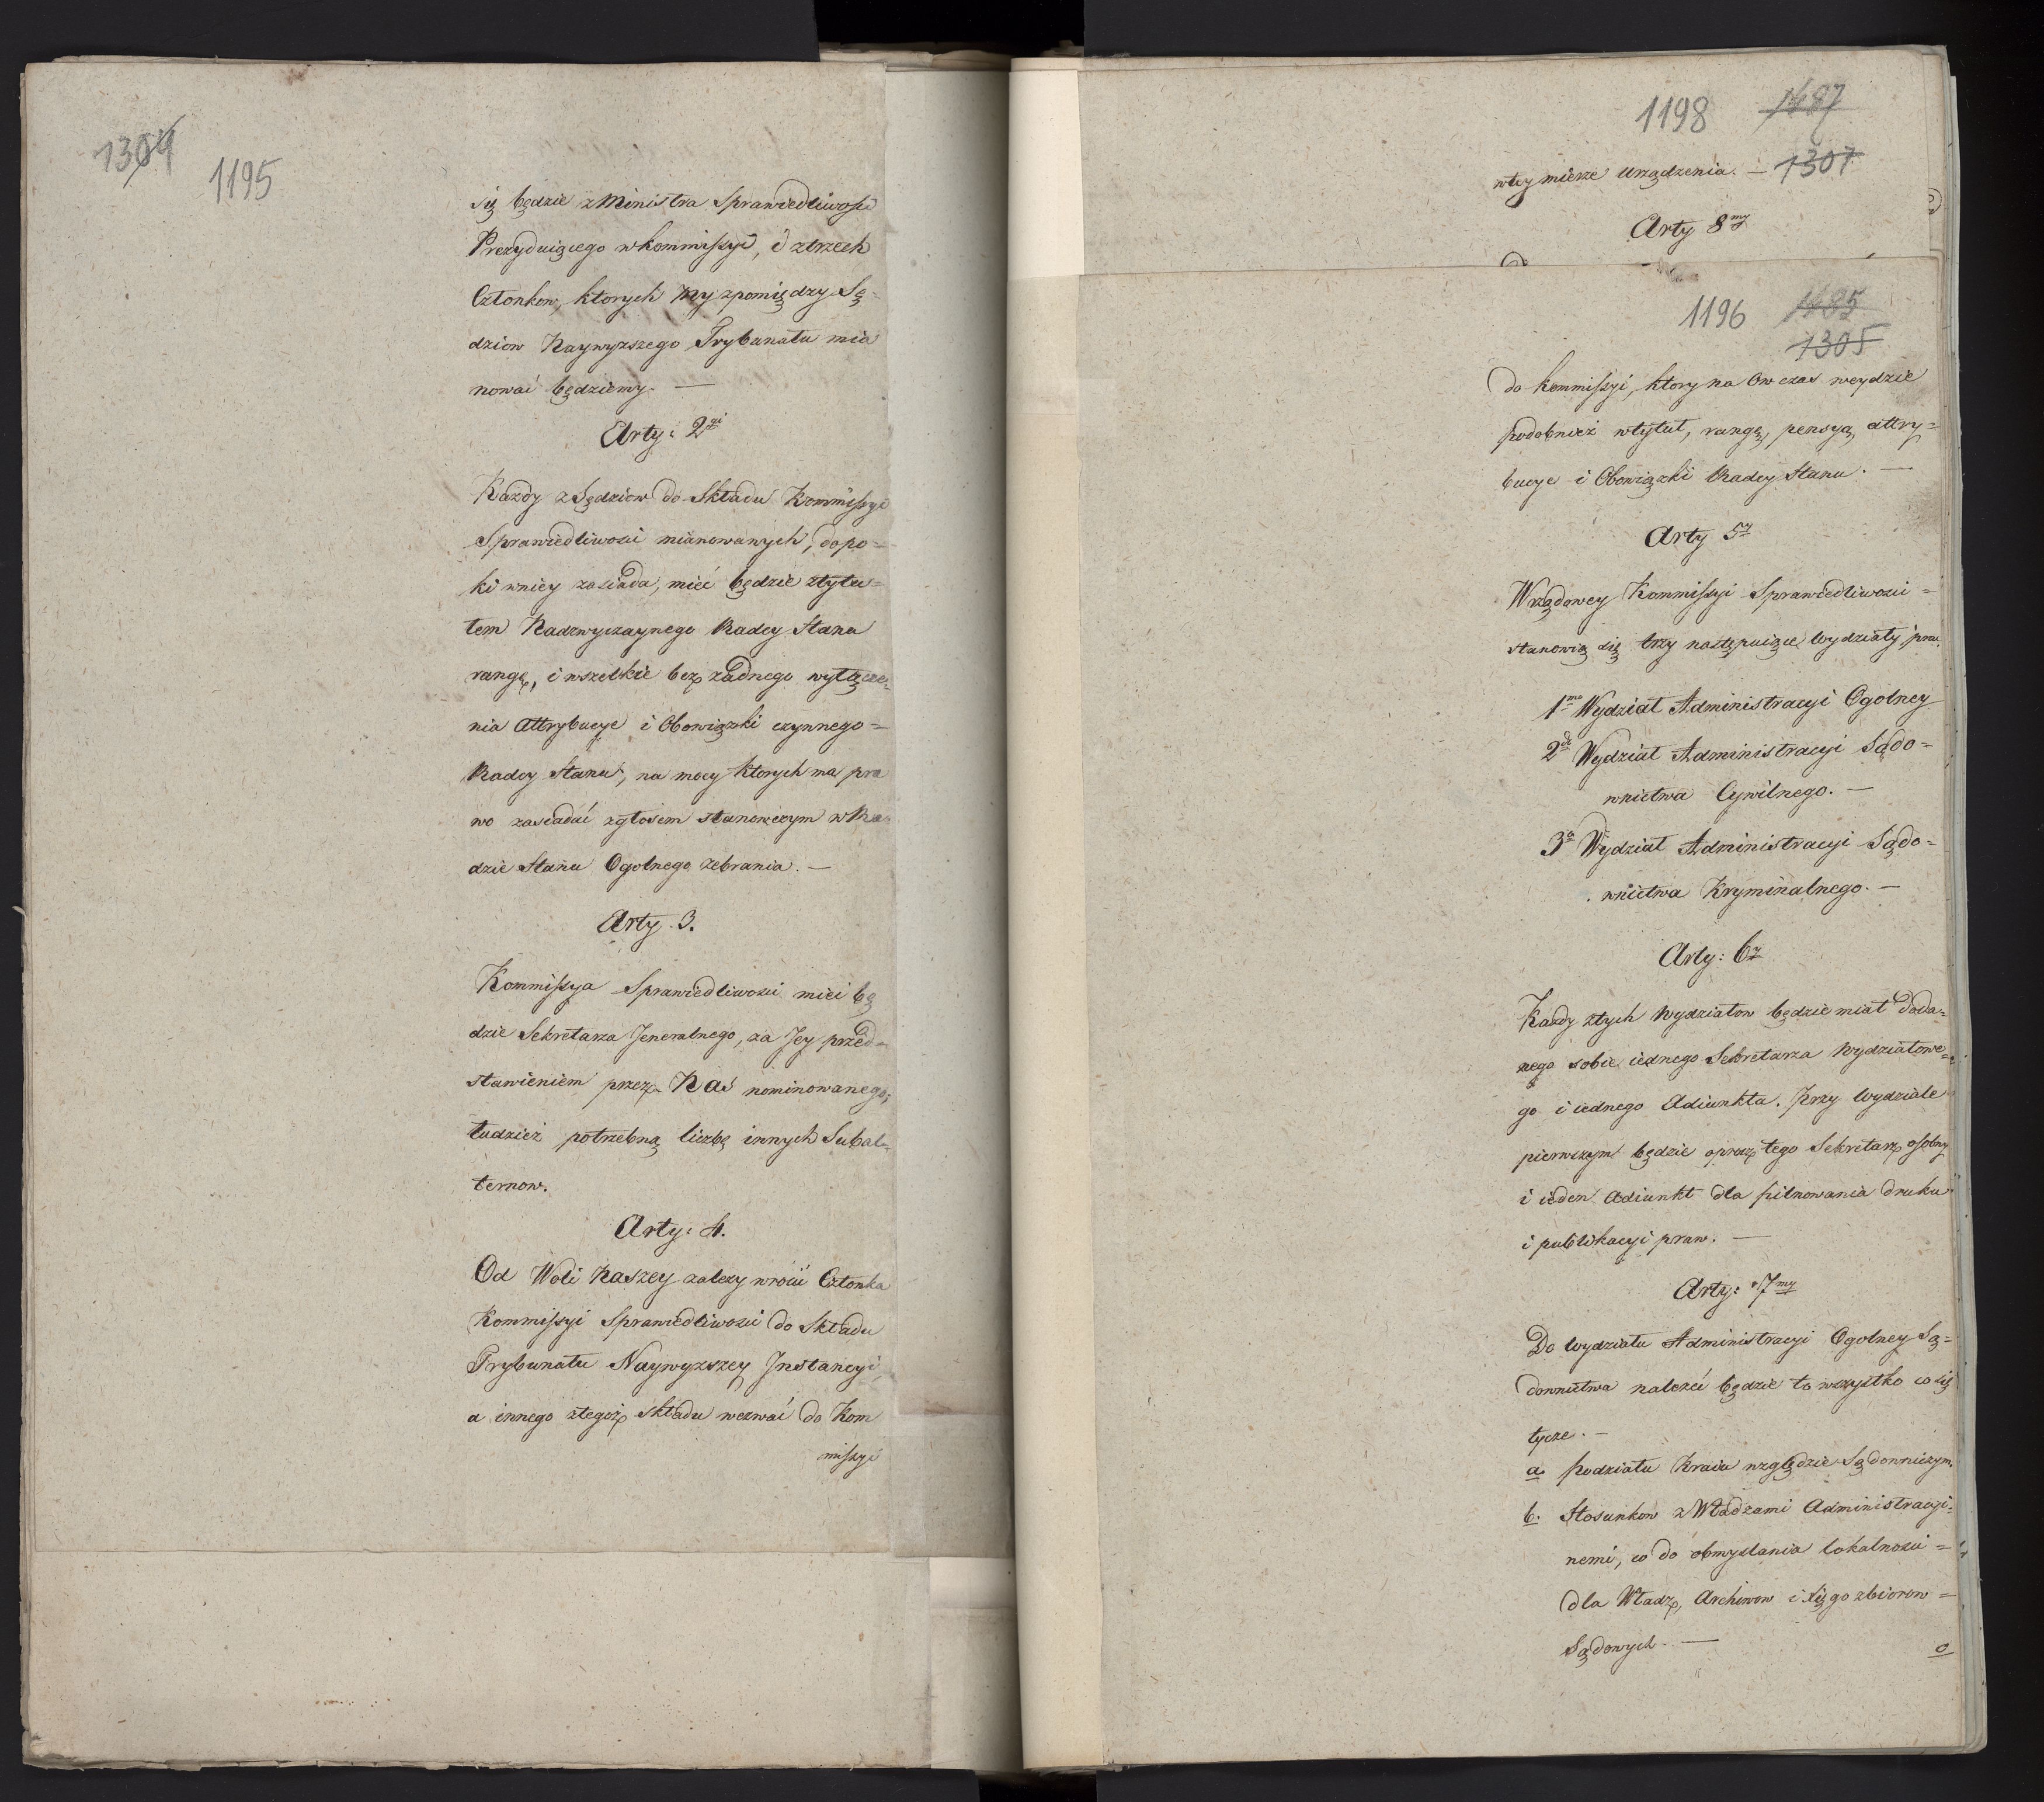 1304
1195
się będzie z Ministra Sprawiedliwości
Prezyduiącego w kommissyi, i z trzech
Członkow, ktorych My z pomiędzy Sę=
dziow Naywyższego Trybunału mia
nować będziemy. —
Arty: 2gi
Każdy z Sędziow do Składu Kommissyi
Sprawiedliwości mianowanych, dopo=
ki w niey zasiada, mieć będzie z tytu=
łem Nadzwyczaynego Radcy Stanu
rangę, i wszelkie bez żadnego wyłącze=
nia Attrybucye i Obowiązki czynnego=
Radcy Stanu, na mocy ktorych ma pra
wo zasiadać z głosem stanowczym w Ra
dzie Stanu Ogolnego zebrania. —
Arty. 3.
Kommissya Sprawiedliwości mieć bę
dzie Sekretarza Jeneralnego, za Jey przed=
stawieniem przez Nas nominowanego;
tudzież potrzebną liczbę innych Subal=
ternow.
Arty: 4.
Od Woli Naszey zależy wrócić Członka
Kommissyi Sprawiedliwości do Składu
Trybunału Naywyższey Jnstancyi,
a innego z tegoż składu wezwać do Kom
missyi
1198 1487
w tey mierze urządzenia. — 1307
Arty 8my
1196 1485
1305
do kommissyi, ktory na Ow czas weydzie
podobnież w tytuł, rangę, pensyą, attry=
bucye i Obowiązki Radcy Stanu. —
Arty 5ty
W rządowey Kommissyi Sprawiedliwości =
stanowią się trzy następuiące wydziały
1mo Wydział Administracyi Ogolney
2do Wydział Administracyi Sądo=
wnictwa Cywilnego. —
3o Wydział Administracyi Sądo=
wnictwa Kryminalnego. —
Arty: 6ty
Każdy z tych wydziałow będzie miał doda=
nego sobie iednego Sekretarza wydziałowe=
go i iednego Adiunkta. Przy wydziale
pierwszym będzie oprocz tego Sekretarz osobny
i ieden Adiunkt dla pilnowania druku
i publikacyi praw. —
Arty: 7my
Do wydziału Administracyi Ogolney Są=
downictwa należeć będzie to wszystko co się
tycze. —
a. Podziału Kraiu względzie Sądowniczym.
b. Stosunkow z Władzami Administracyi=
nemi, co do obmyslania lokalności =
dla Władz, Archiwow i xięgozbiorow =
Sądowych. —
c